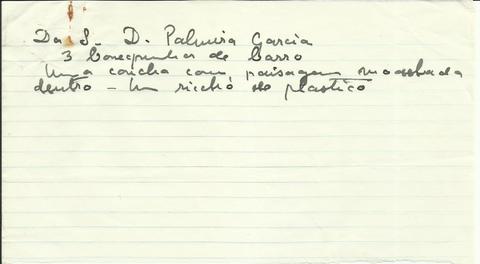 Da S. D. Palmira Garcia
3 bonequinhos de barro
Uma concha com paisagem
dentro - Um de plastico